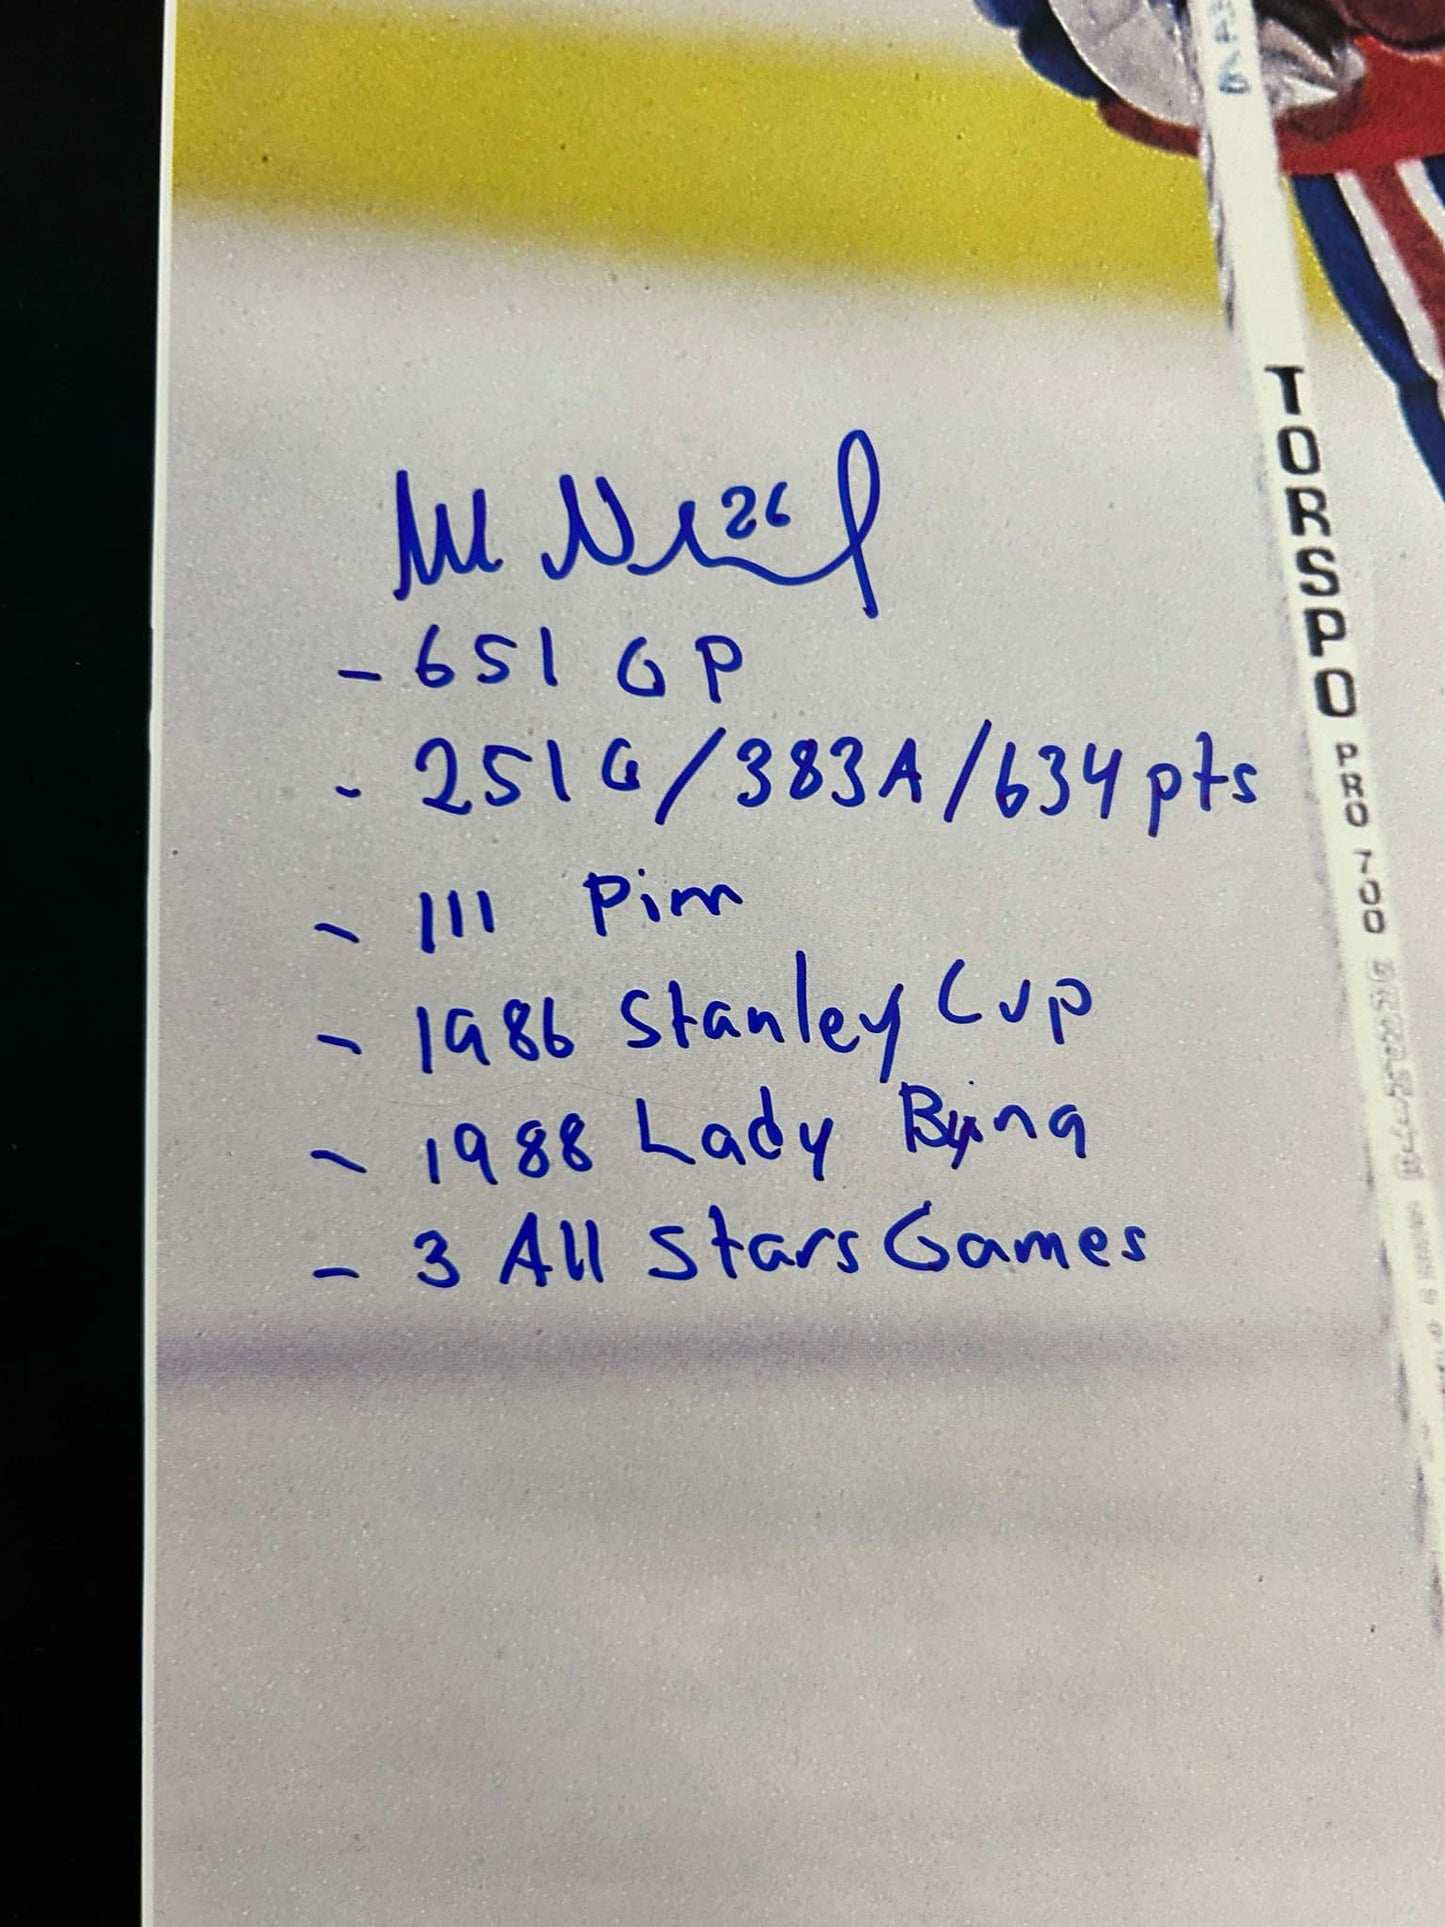 26
- 651 GP
- 251G/383A/634pts
- 111 Pim
- 1986 Stanley Cup
- 1988 Lady Byng
- 3 All Stars Games
TORSPO PRO 700